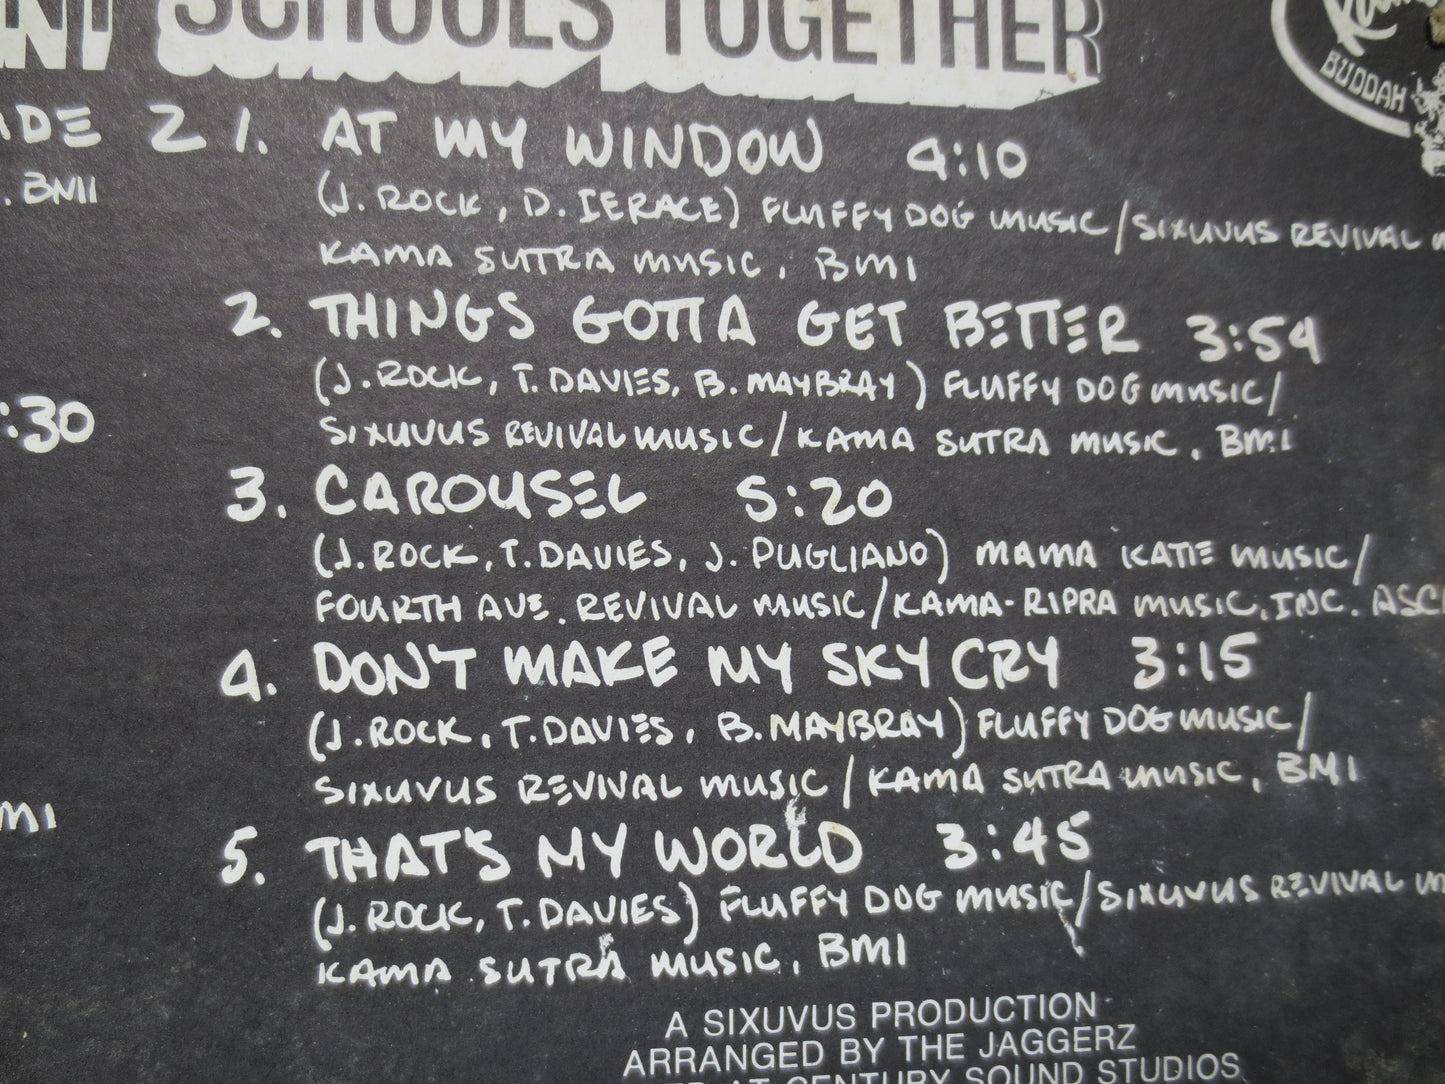 SCHOOLS TOGETHER
BUDDAH
2 1. AT MY WINDOW 4:10
BMI
(J. ROCK, D. IERACE) FLUFFY DOG MUSIC/SIXUVUS REVIVAL
KAMA SUTRA MUSIC, BMI
2. THINGS GOTTA GET BETTER 3:54
(J. ROCK, T. DAVIES, B. MAYBRAY) FLUFFY DOG MUSIC/
:30
SIXUVUS REVIVAL MUSIC/KAMA SUTRA MUSIC, BMI
3. CAROUSEL 5:20
(J. ROCK, T. DAVIES, J. PUGLIANO) MAMA KATIE MUSIC/
FOURTH AVE. REVIVAL MUSIC/KAMA-RIPRA MUSIC, INC. ASC
4. DON'T MAKE MY SKY CRY 3:15
(J. ROCK, T. DAVIES, B. MAYBRAY) FLUFFY DOG MUSIC/
SIXUVUS REVIVAL MUSIC/KAMA SUTRA MUSIC, BMI
MI
5. THAT'S MY WORLD 3:45
(J. ROCK, T. DAVIES) FLUFFY DOG MUSIC/SIXUVUS REVIVAL
KAMA SUTRA MUSIC, BMI
A SIXUVUS PRODUCTION
ARRANGED BY THE JAGGERZ
AT CENTURY SOUND STUDIOS